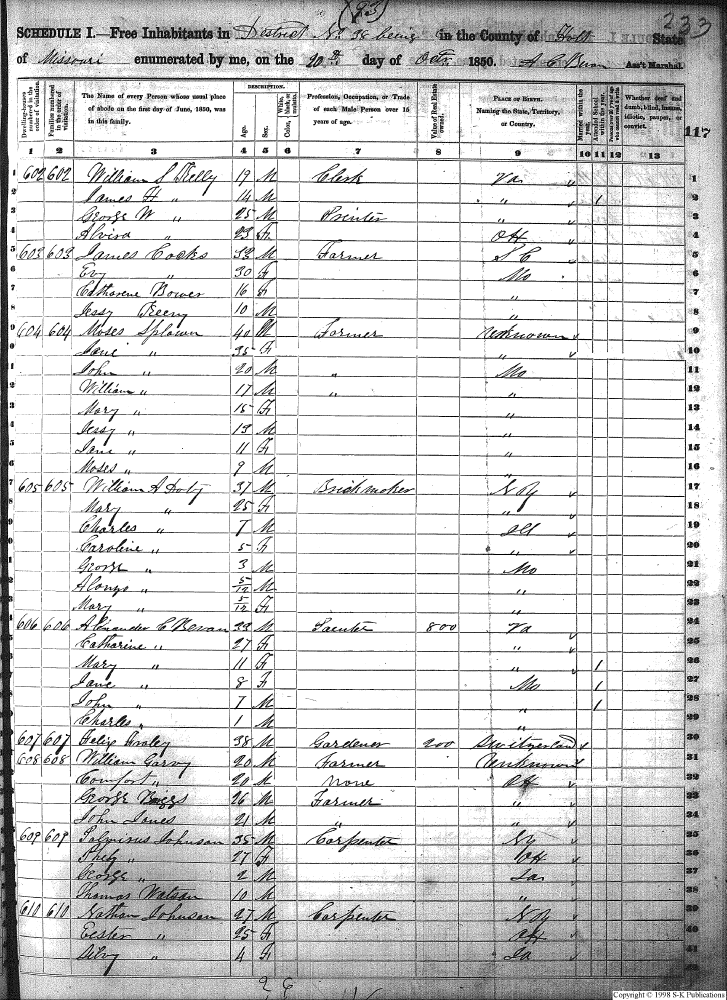 (93)
233
SCHEDULE I.—Free Inhabitants in District No 38 being in the County of Holt State
of Missouri enumerated by me, on the 10th day of Octr 1850. A C Bevan Ass't Marshal.
Dwelling-houses numbered in the order of visitation. Families numbered in the order of visitation. The Name of every Person whose usual place of abode on the first day of June, 1850, was in this family. DESCRIPTION. Age. Sex. Color, White, black, or mulatto. Profession, Occupation, or Trade of each Male Person over 15 years of age. Value of Real Estate owned. PLACE OF BIRTH. Naming the State, Territory, or Country. Married within the year. Attended School within the year. Whether deaf and dumb, blind, insane, idiotic, pauper, or convict.
117
1 2 3 4 5 6 7 8 9 10 11 12 13
1 602 602 William S Kelly 19 M Clerk Va 1
2 James H " 14 M " 1 2
3 George W " 25 M Printer " 3
4 Alvira " 23 F OH 4
5 603 603 James Cooks 32 M Farmer S C 5
6 Evy " 30 F Mo 6
7 Catharene Bower 16 F " 7
8 Jessy Creeny 10 M " 8
9 604 604 Moses Splawn 40 M Farmer Unknown 9
10 Jane " 35 F " 10
11 John " 20 M " Mo 11
12 William " 17 M " " 12
13 Mary " 15 F " 13
14 Jessy " 13 M " 14
15 Jane " 11 F " 15
16 Moses " 9 M " 16
17 605 605 William A Doty 37 M Brickmaker N Y 17
18 Mary " 25 F " 18
19 Charles " 7 M Ill 19
20 Caroline " 5 F " 20
21 George " 3 M Mo 21
22 Alonzo " 5/12 M " 22
23 Mary " 5/12 F " 23
24 606 606 Alexander C Bevan 33 M Painter 800 Va 24
25 Catharine " 27 F " 25
26 Mary " 11 F " 1 26
27 Jane " 8 F Mo 1 27
28 John " 7 M " 1 28
29 Charles " 1 M " 29
30 607 607 Felix 38 M Gardener 200 Switzerland 30
31 608 608 William Garvy 20 M Farmer Unknown 31
32 Comfort " 20 M None OH 32
33 George Boggs 26 M Farmer " 33
34 John Jones 21 M " " 34
35 609 609 Johnson 35 M Carpenter Ny 35
36 " 27 F OH 36
37 George " 2 M Ia 37
38 Thomas Watson 10 M " 38
39 610 610 Nathan Johnson 27 M Carpenter N Y 39
40 Eester " 25 F OH 40
41 " 4 F Ia 41
Copyright © 1998 S-K Publications